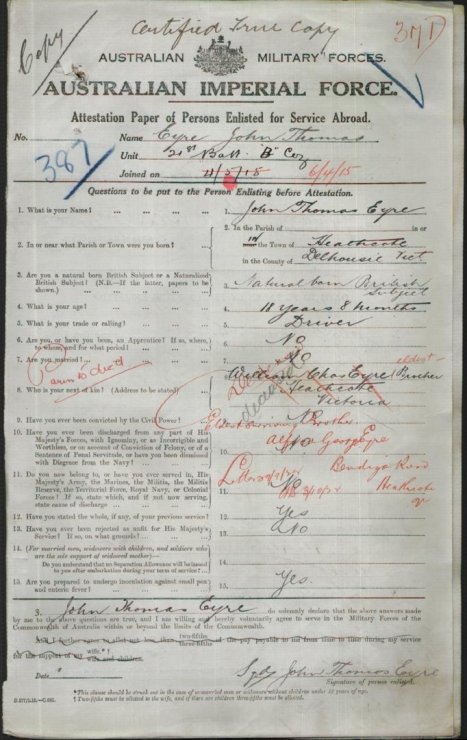 Copy
Certified True Copy
37D
AUSTRALIAN MILITARY FORCES.
AUSTRALIAN IMPERIAL FORCE.
Attestation Paper of Persons Enlisted for Service Abroad.
No. Name Eyre John Thomas
387
Unit 21st Batt. "B" Coy
Joined on 4/5/15 6/4/15
Questions to be put to the Person Enlisting before Attestation.
1. What is your Name? ... ... ... ... 1. John Thomas Eyre
2. In or near what Parish or Town were you born? ... 2. In the Parish of in or
in the Town of Heathcote
in the County of Dalhousie Vict
3. Are you a natural born British Subject or a Naturalised
British Subject? (N.B.—If the latter, papers to be
shown.) 3. Natural born British
Subject
4. What is your age? ... ... ... ... 4. 18 Years 8 months
5. What is your trade or calling? ... ... ... 5. Driver
6. Are you, or have you been, an Apprentice? If so, where,
to whom, and for what period? ... ... ... 6. No
7. Are you married? ... ... ... ... 7. No
Parents dec'd
eldest
8. Who is your next of kin? (Address to be stated) ... Chas Eyre Brother
Heathcote
Victoria
deceased
9. Have you ever been convicted by the Civil Power? ... 9. No
Eldest surviving Brother
10. Have you ever been discharged from any part of His
Majesty's Forces, with Ignominy, or as Incorrigible and
Worthless, or on account of Conviction of Felony, or of a
Sentence of Penal Servitude, or have you been dismissed
with Disgrace from the Navy? ... ... 10. No
George Eyre
Bendigo Road
Heathcote
11. Do you now belong to, or have you ever served in, His
Majesty's Army, the Marines, the Militia, the Militia
Reserve, the Territorial Force, Royal Navy, or Colonial
Forces? If so, state which, and if not now serving,
state cause of discharge ... ... 11. No
12. Have you stated the whole, if any, of your previous service? 12. Yes
13. Have you ever been rejected as unfit for His Majesty's
Service? If so, on what grounds? ... ... 13. No
14. (For married men, widowers with children, and soldiers who
are the sole support of widowed mother)—
Do you understand that no Separation Allowance will be issued
to you after embarkation during your term of service? ... 14.
15. Are you prepared to undergo inoculation against small pox
and enteric fever? ... ... ... 15. Yes.
I, John Thomas Eyre do solemnly declare that the above answers made
by me to the above questions are true, and I am willing and hereby voluntarily agree to serve in the Military Forces of the
Commonwealth of Australia within or beyond the limits of the Commonwealth.
And I further agree to allot not less than two-fifths three-fifths of the pay payable to me from time to time during my service
for the support of my wife.* wife and children.
Date Sgd John Thomas Eyre
Signature of person enlisted.
*This clause should be struck out in the case of unmarried men or widowers without children under 18 years of age.
† Two-fifths must be allotted to the wife, and if there are children three-fifths must be allotted.